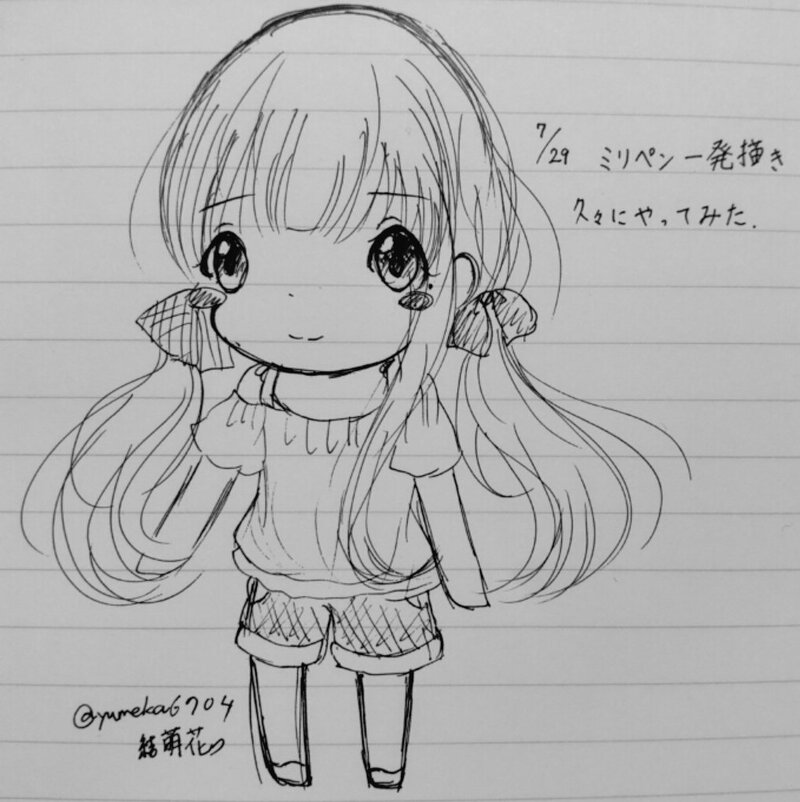 7/29 ミリペン一発描き
久々にやってみた.
@yumeka6704
結萌花